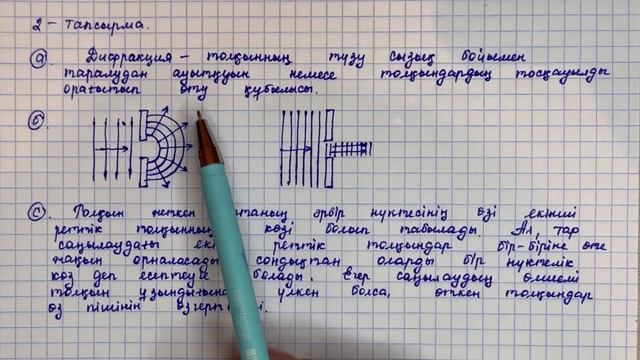 2 - тапсырма.
а) Дифракция – толқынның түзу сызық бойымен
таралудан ауытқуын немесе толқындардың тосқауылды
орағытып өту құбылысы.
б)
с) Толқын жеткен ортаның әрбір нүктесінің өзі екінші
реттік толқынның көзі болып табылады. Ал, тар
саңылаудағы екі реттік толқындар бір-біріне өте
жақын орналасады сондықтан оларды бір нүктелік
көз деп есептеуге болады. Егер саңылаудың өлшемі
толқын ұзындығынан үлкен болса, өткен толқындар
өз пішінін өзгертпейді.